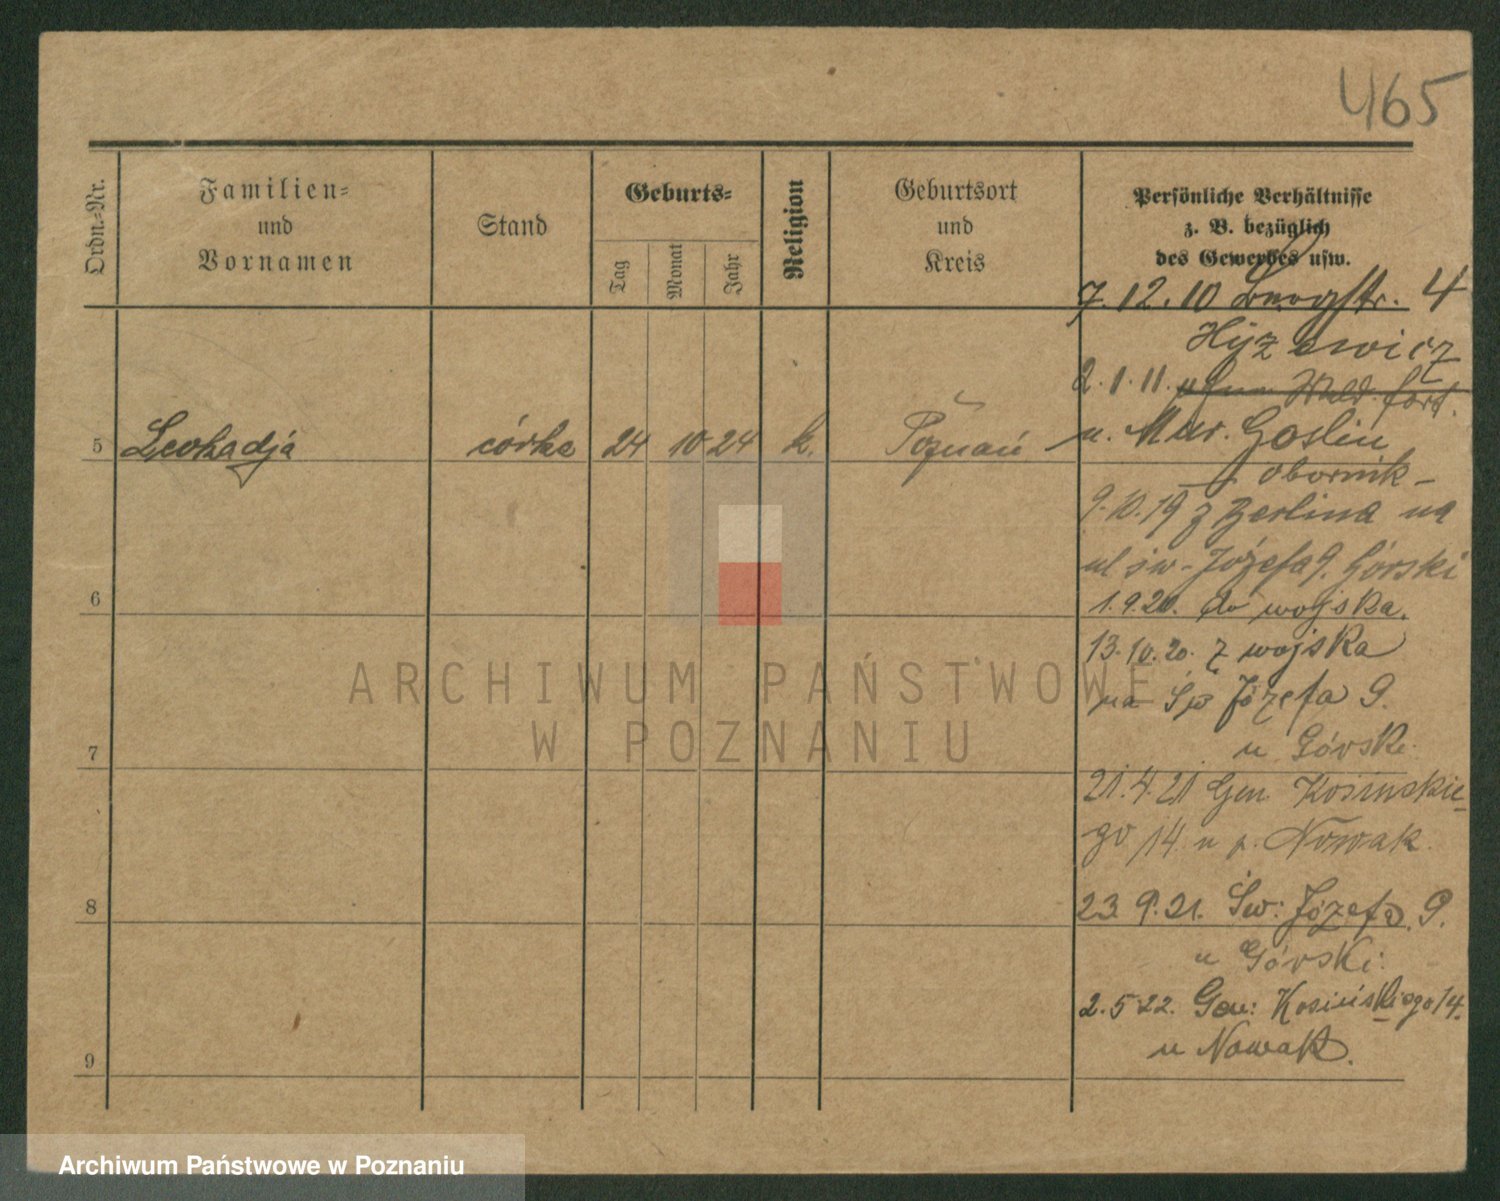 465
Ordn.-Nr.
Familien-
und
Vornamen
Stand
Geburts-
Tag
Monat
Jahr
Religion
Geburtsort
und
Kreis
Persönliche Verhältnisse
z. B. bezüglich
des Gewerbes usw.
7.12.10 Langstr. 4
Hyżewicz
2.1.11. fort.
5 Leokadja córka 24 10 24 k. Poznań
n. Mur. Goslin
Obornik -
9.10.19 z Berlina na
ul św. Józefa 9. Górski
6
1.9.20. do wojska.
13.10.20. z wojska
na Św Józefa 9.
u Górski.
7
21.4.21 Gen. Kosinskie-
go 14 u p. Nowak.
8
23.9.21. Św: Józefa. 9.
u Górski.
2.5.22. Gen: Kosińskiego 14.
u Nowak.
9
ARCHIWUM PAŃSTWOWE
W POZNANIU
Archiwum Państwowe w Poznaniu